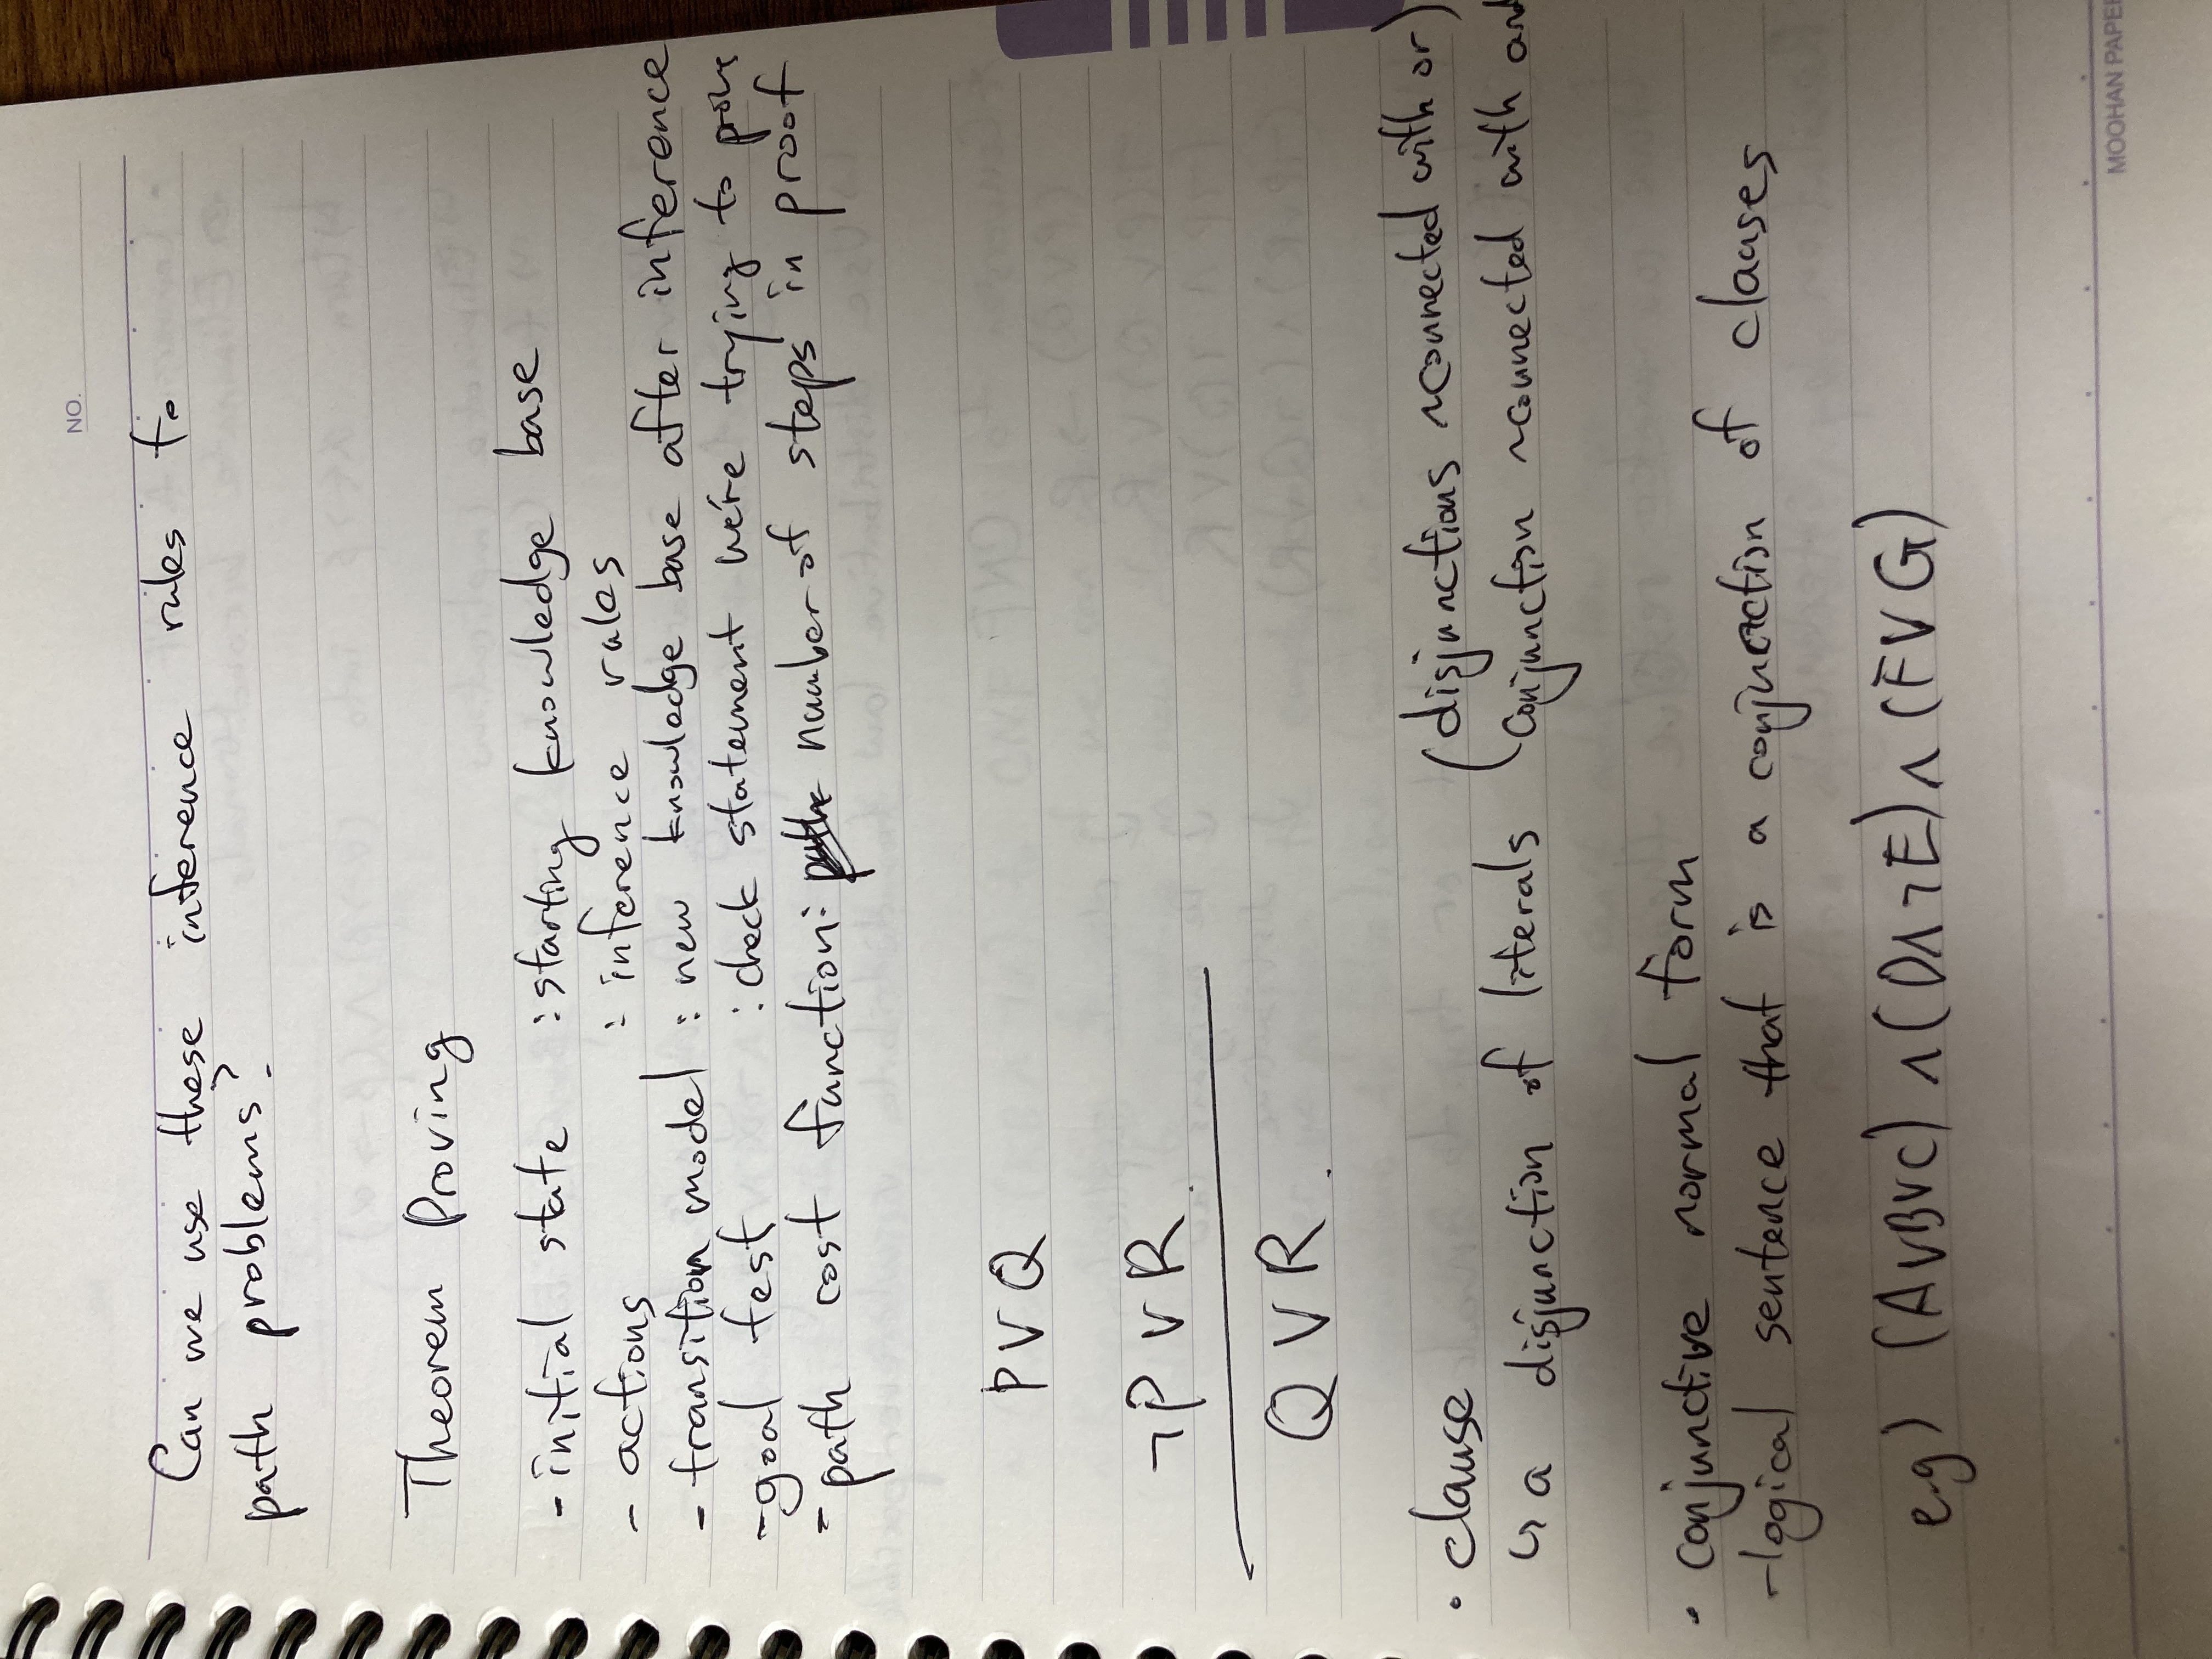 NO.
Can we use these inference rules to
path problems?
Theorem Proving
- initial state : starting knowledge base
- actions : inference rules
- transition model : new knowledge base after inference
- goal test : check statement we're trying to prove
- path cost function: number of steps in proof
P V Q
¬P V R.
Q V R.
• clause (disjunctions ~connected with or)
↳ a disjunction of literals conjunction ~connected with and
• conjunctive normal form
- logical sentence that is a conjunction of clauses
e.g) (A∨B∨C) ∧ (D∧¬E) ∧ (F∨G)
MOOHAN PAPER